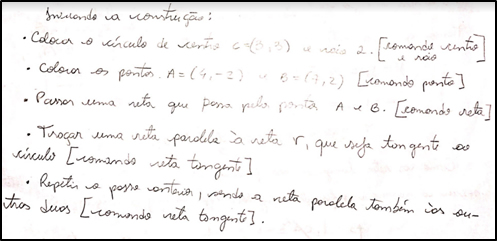 Iniciando a construção:
• Colocar o círculo de centro C=(3,3) e raio 2. [comando centro e raio]
• Colocar os pontos. A=(4,-2) e B=(7,2) [comando ponto]
• Passar uma reta que passa pelo ponto A e B. [comando reta]
• Traçar uma reta paralela à reta r, que seja tangente ao
círculo [comando reta tangente]
• Repetir o passo anterior, sendo a reta paralela também às ou-
tras duas [comando reta tangente].